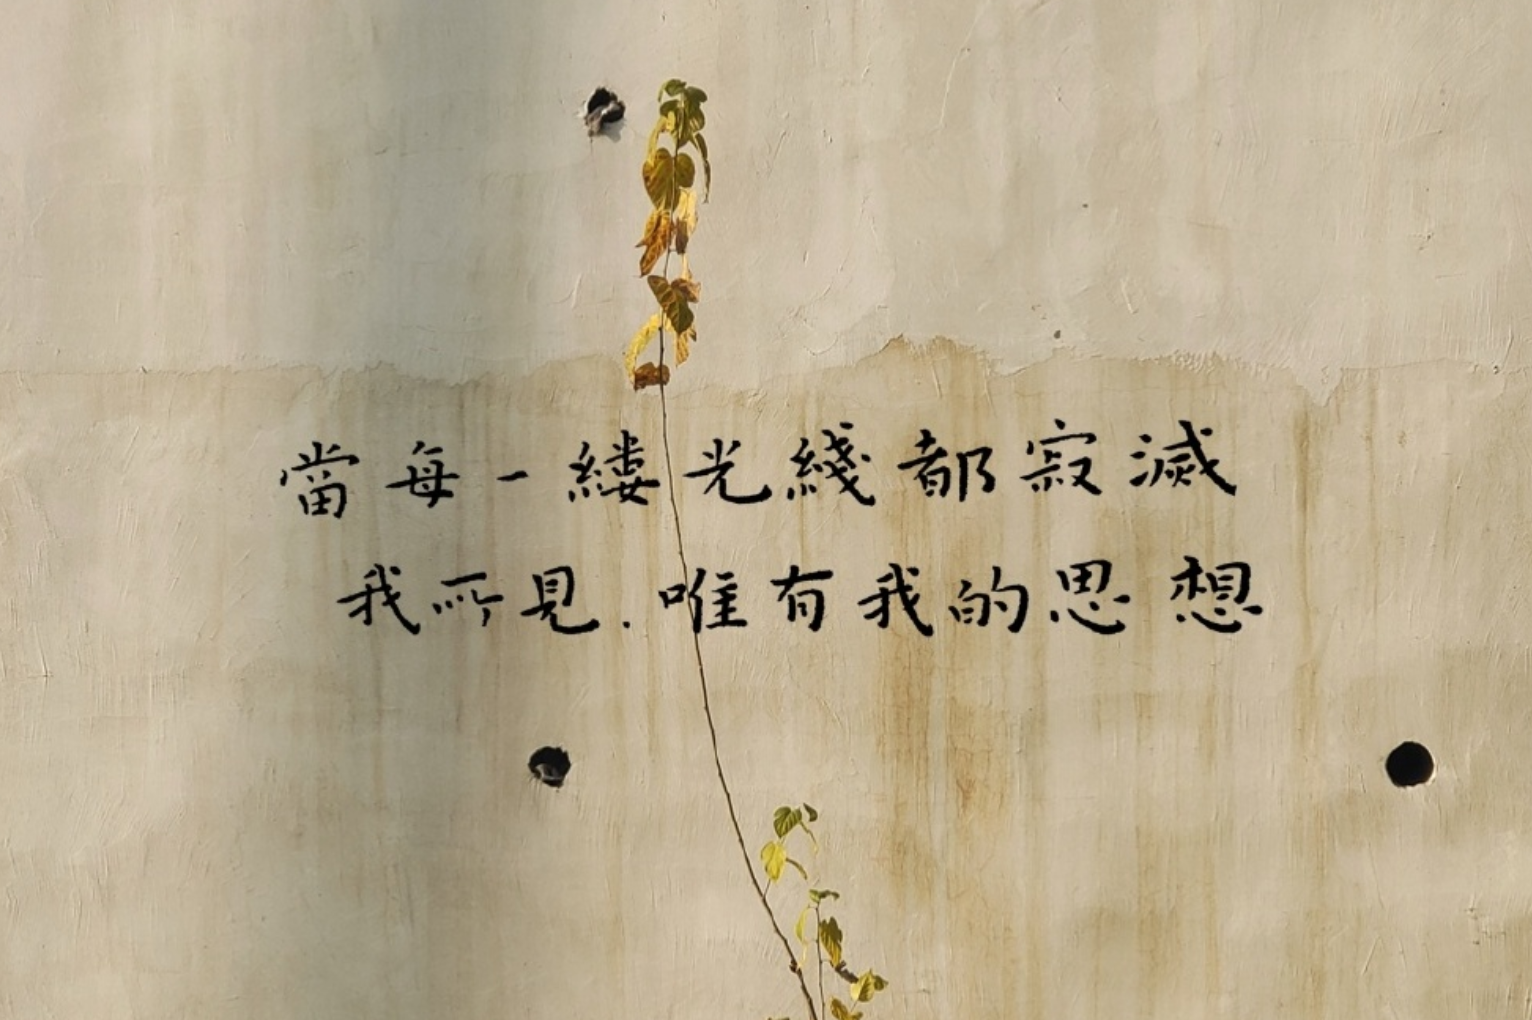 當每一縷光綫都寂滅
我所見.唯有我的思想